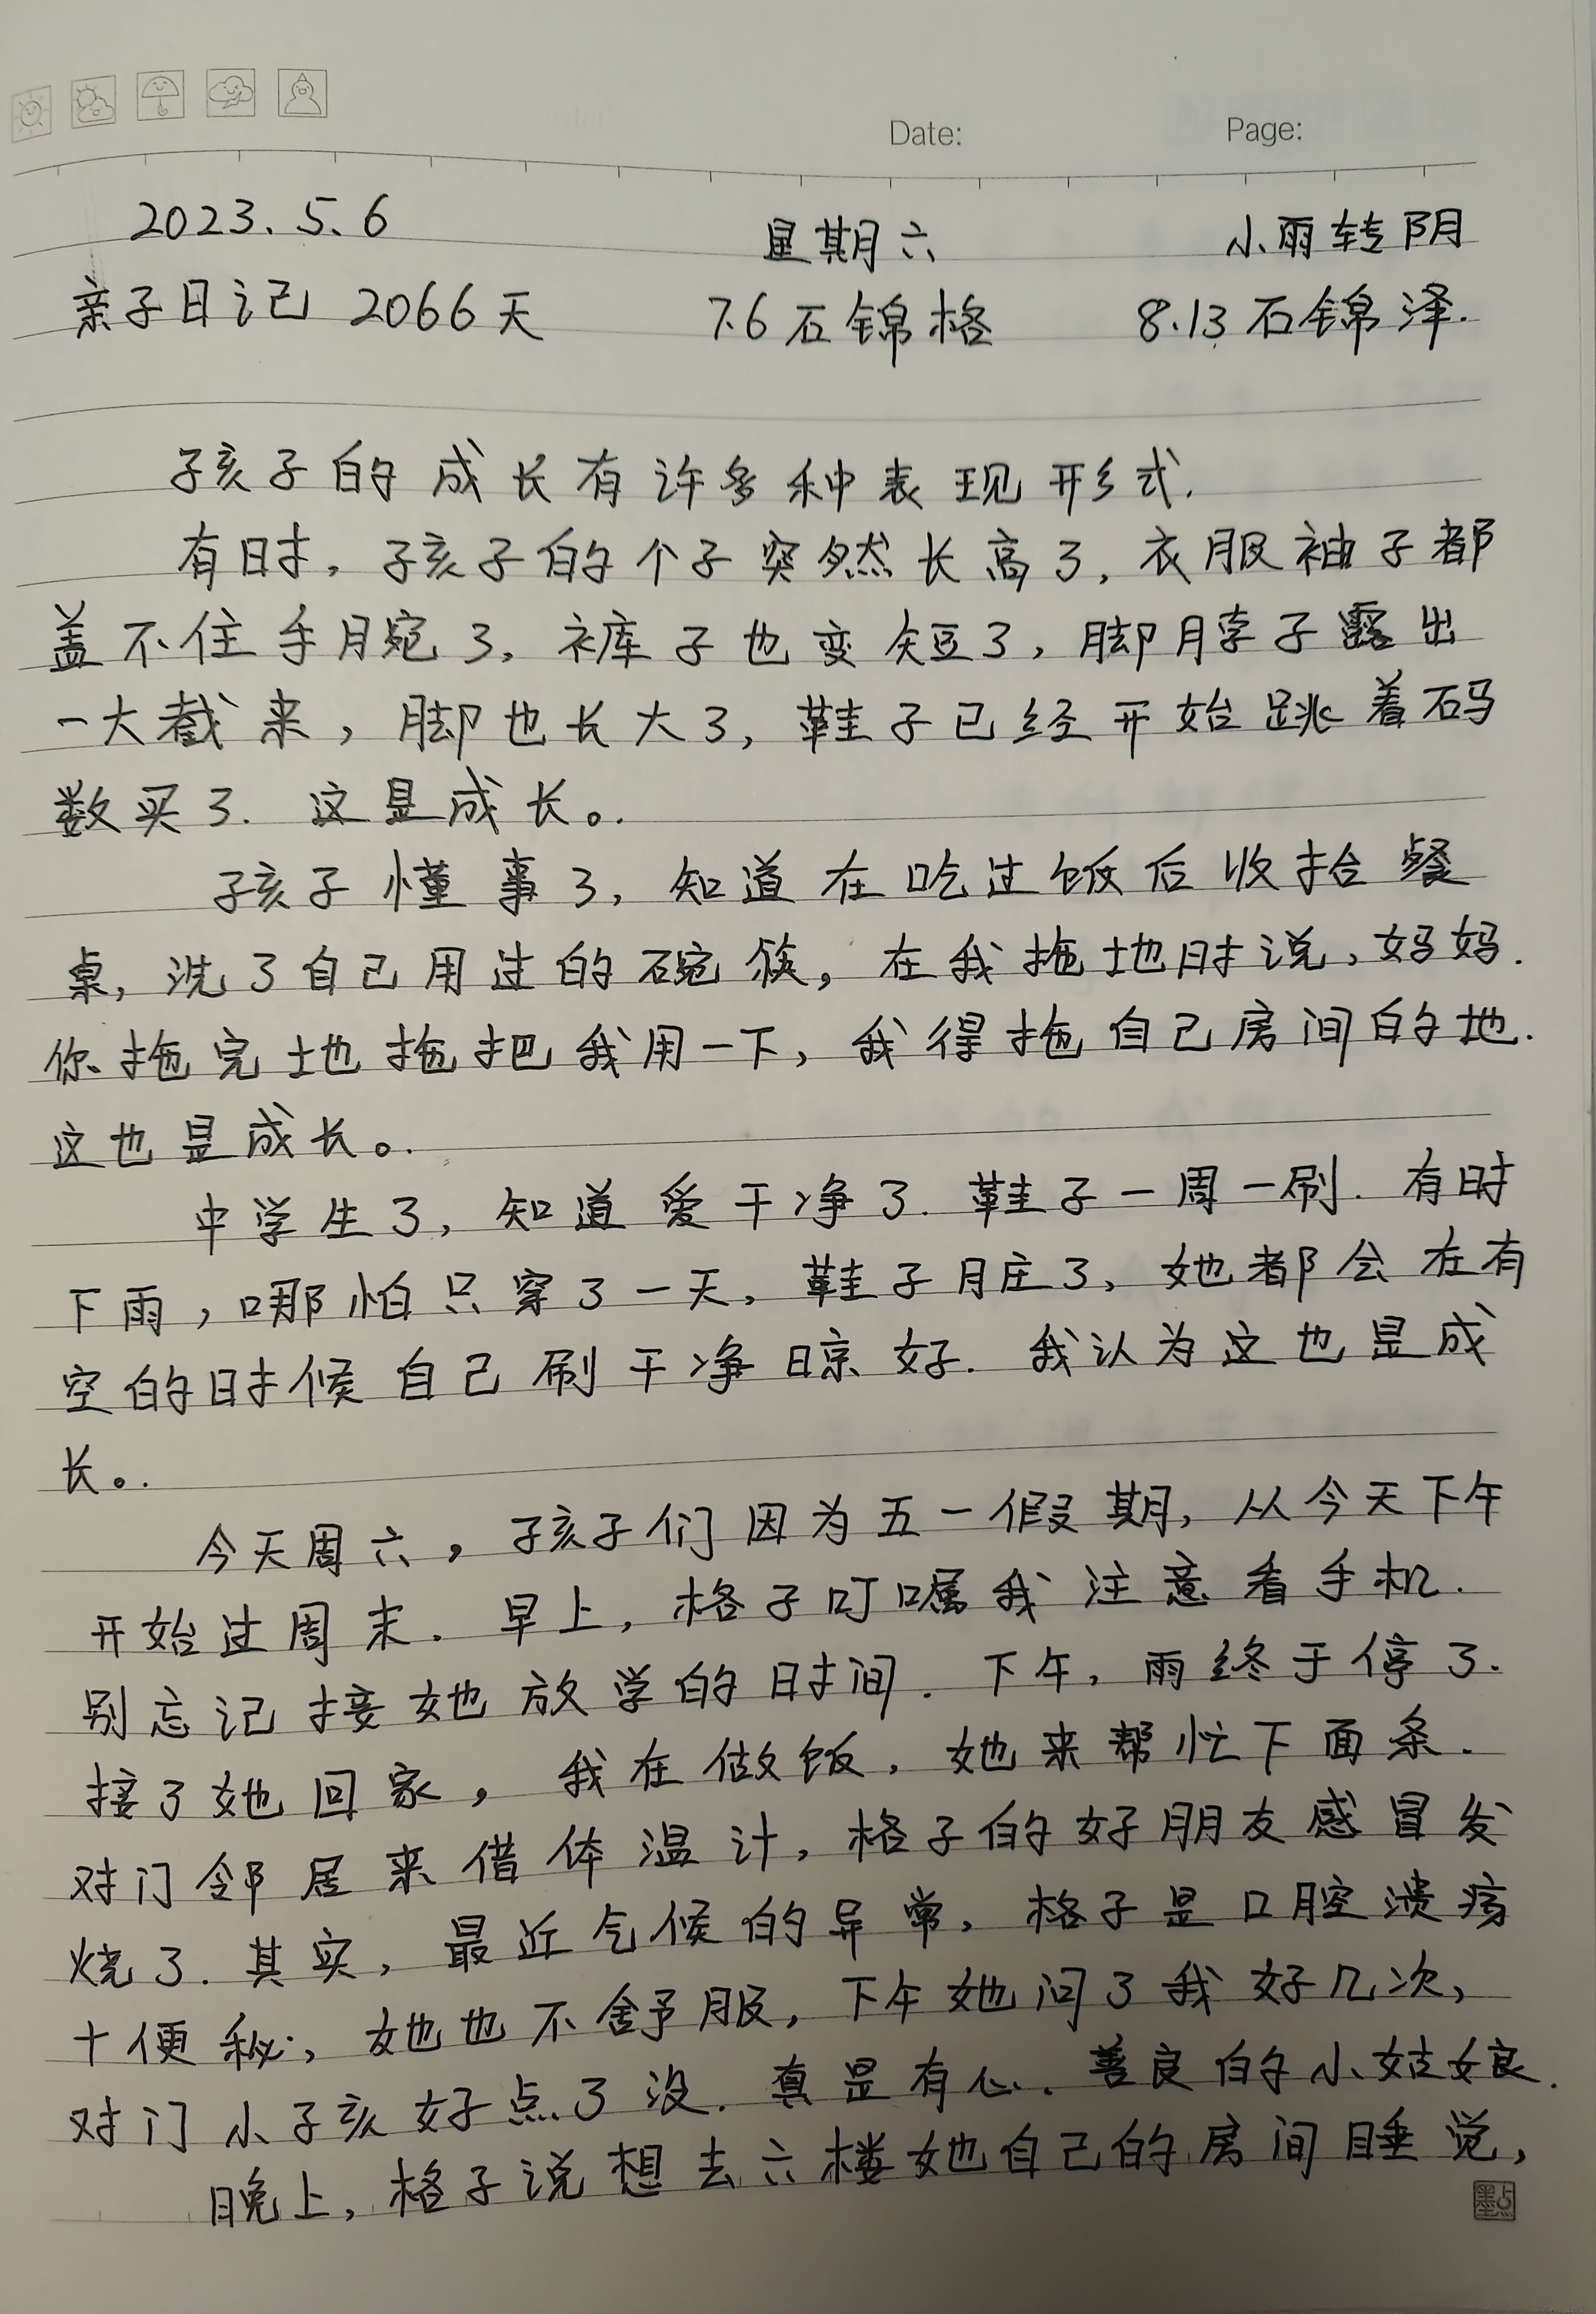 Date:
Page:
2023.5.6 星期六 小雨转阴
亲子日记 2066天 7.6石锦格 8.13石锦泽.
孩子的成长有许多种表现形式.
有时,孩子的个子突然长高了,衣服袖子都
盖不住手腕了,裤子也变短了,脚脖子露出
一大截来,脚也长大了,鞋子已经开始跳着码
数买了.这是成长。.
孩子懂事了,知道在吃过饭后收拾餐
桌,洗了自己用过的碗筷,在我拖地时说,妈妈.
你拖完地拖把我用一下,我得拖自己房间的地.
这也是成长。.
中学生了,知道爱干净了.鞋子一周一刷.有时
下雨,哪怕只穿了一天,鞋子脏了,她都会在有
空的时候自己刷干净晾好.我认为这也是成
长。.
今天周六,孩子们因为五一假期,从今天下午
开始过周末.早上,格子叮嘱我注意看手机.
别忘记接她放学的时间.下午,雨终于停了.
接了她回家,我在做饭,她来帮忙下面条.
对门邻居来借体温计,格子的好朋友感冒发
烧了.其实,最近气候的异常,格子是口腔溃疡
十便秘,她也不舒服,下午她问了我好几次,
对门小孩好点了没.真是有心.善良的小姑娘.
晚上,格子说想去六楼她自己的房间睡觉,
墨点